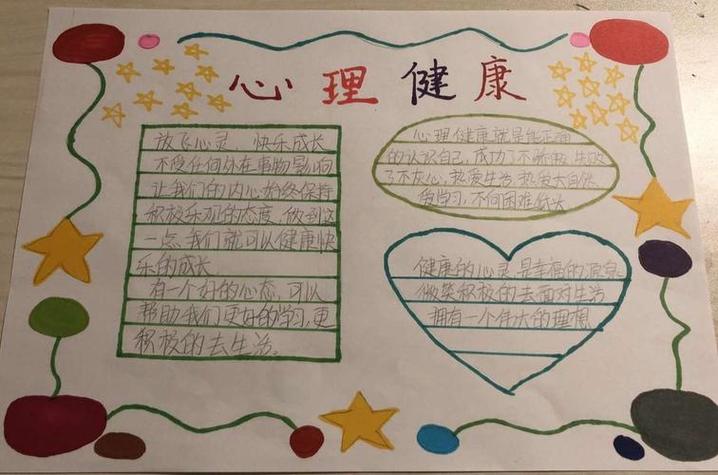 心理健康
放飞心灵、快乐成长
不受任何外在事物影响
让我们的内心始终保持
积极乐观的态度,做到这
一点,我们就可以健康快
乐的成长
有一个好的心态,可以
帮助我们更好的学习,更
积极的去生活。
心理健康就是能正确
的认识自己,成功了不骄傲,失败
了不灰心,热爱生活,热爱大自然
爱学习,不向困难低头
健康的心灵是幸福的源泉
微笑积极的去面对生活
拥有一个伟大的理想